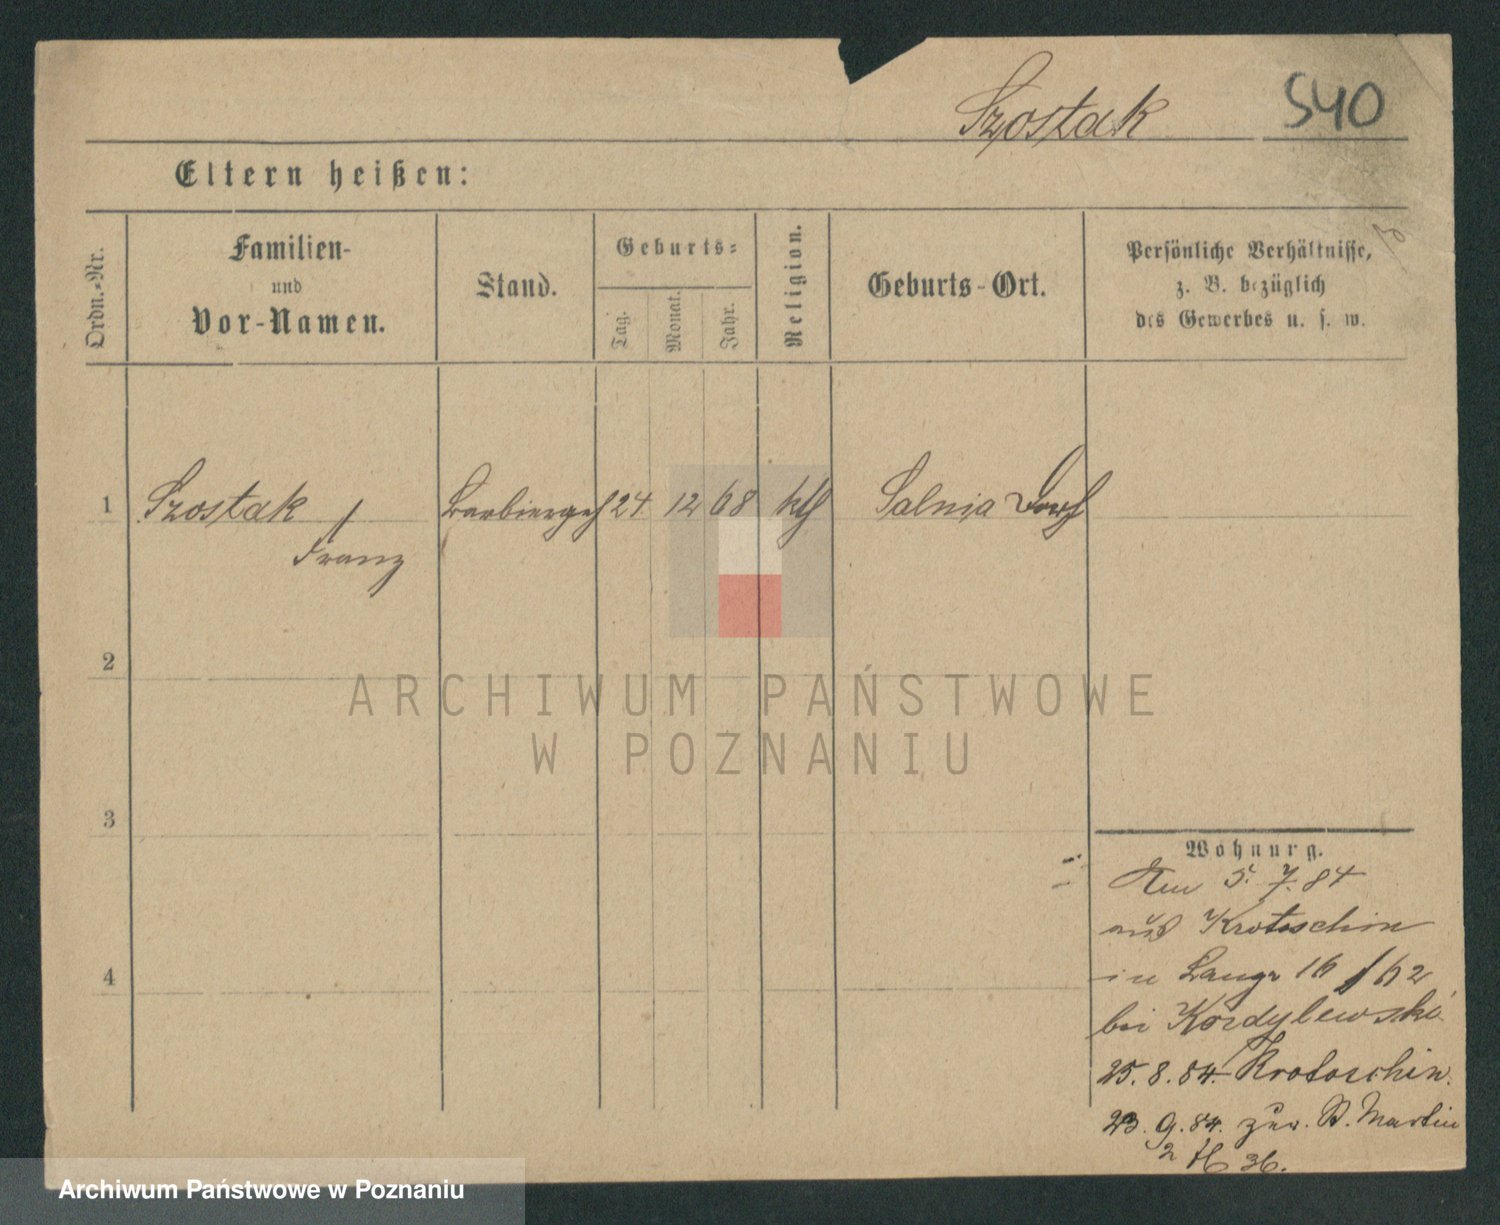 Szostak 540
Eltern heißen:
Ordn.-Nr.
Familien-
und
Vor-Namen.
Stand.
Geburts-
Tag.
Monat.
Jahr.
Religion.
Geburts-Ort.
Persönliche Verhältnisse,
z. B. bezüglich
des Gewerbes u. s. w.
1 Szostak Barbiergeh 24 12 68 kth Salnia Dorf
Franz
2
ARCHIWUM PAŃSTWOWE
W POZNANIU
3
4
Wohnung.
Am 5. 7. 84
aus Krotoschin
in Lange 16 / 62
bei Kordylewski
25. 8. 84. Krotoschin.
23. 9. 84. zur. St. Martin
36.
Archiwum Państwowe w Poznaniu